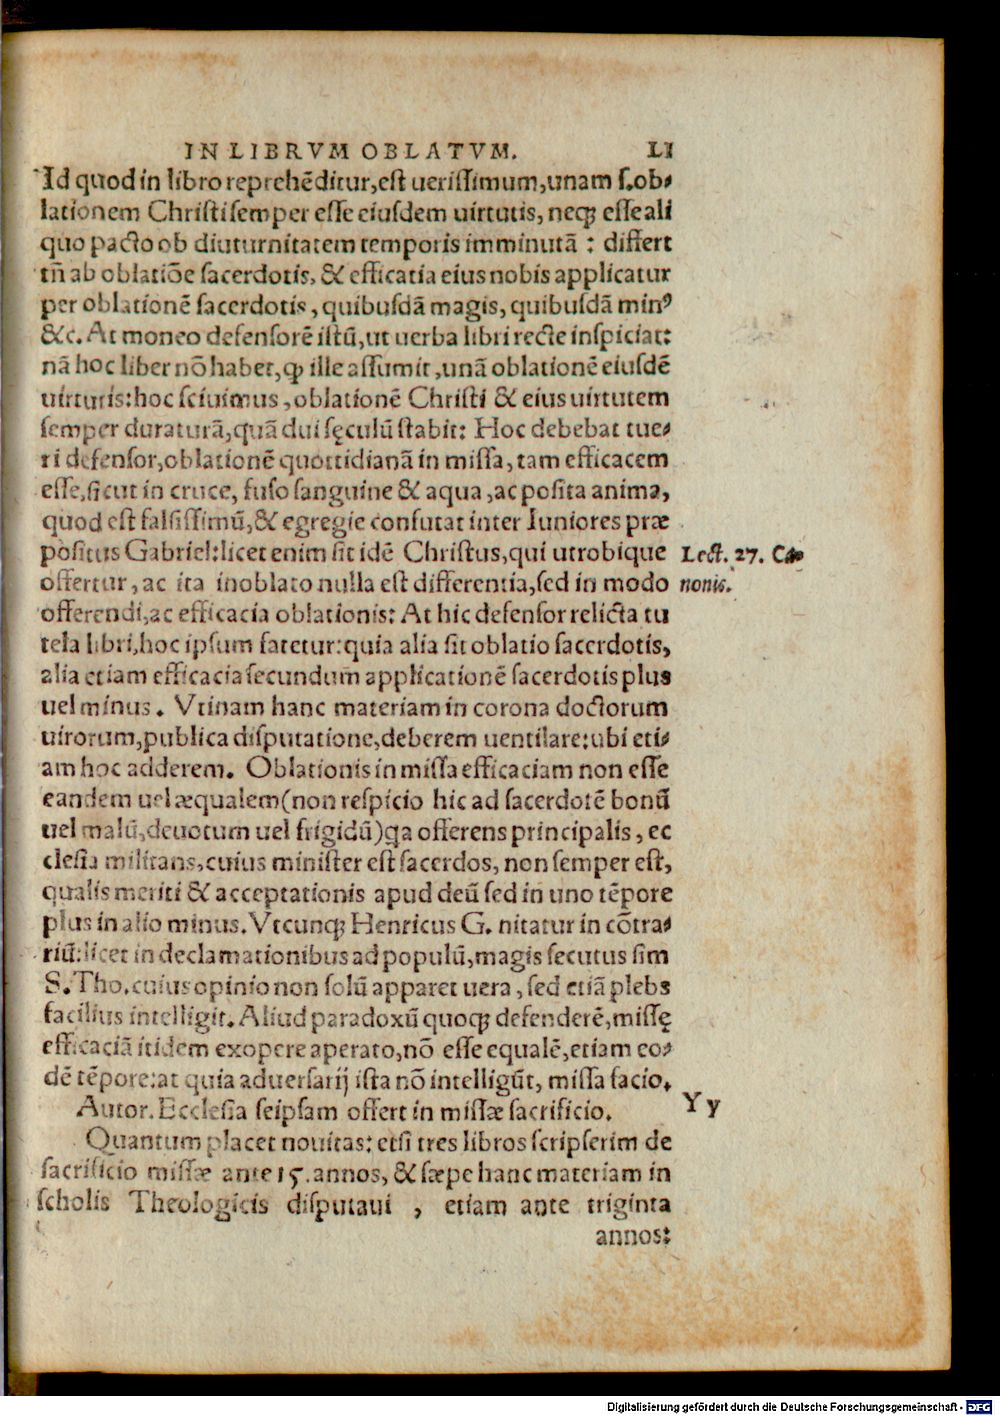 IN LIBRVM OBLATVM. LI
Id quod in libro reprehēditur, est uerissimum, unam s. ob-
lationem Christi semper esse eiusdem uirtutis, neqȝ esse ali
quo pacto ob diuturnitatem temporis imminutā : differt
tñ ab oblatiōe sacerdotis, & efficatia eius nobis applicatur
per oblationē sacerdotis, quibusdā magis, quibusdā minꝰ
&c. At moneo defensorē istū, ut uerba libri recte inspiciat:
nā hoc liber nō habet, ꝙ ille assumit, unā oblationē eiusdē
uirtutis: hoc sciuimus, oblationē Christi & eius uirtutem
semper duraturā, quā dui sęculū stabit: Hoc debebat tue-
ri defensor, oblationē quottidianā in missa, tam efficacem
esse, sicut in cruce, fuso sanguine & aqua, ac posita anima,
quod est falsissimū, & egregie confutat inter Iuniores præ
positus Gabriel: licet enim sit idē Christus, qui utrobique
offertur, ac ita inoblato nulla est differentia, sed in modo
offerendi, ac efficacia oblationis: At hic defensor relicta tu
tela libri, hoc ipsum fatetur: quia alia sit oblatio sacerdotis,
alia etiam efficacia secundum applicationē sacerdotis plus
uel minus. Vtinam hanc materiam in corona doctorum
uirorum, publica disputatione, deberem uentilare: ubi eti-
am hoc adderem. Oblationis in missa efficaciam non esse
eandem uel æqualem (non respicio hic ad sacerdotē bonū
uel malū, deuotum uel frigidū) qa offerens principalis, ec
clesia militans, cuius minister est sacerdos, non semper est,
qualis meriti & acceptationis apud deū sed in uno tēpore
plus in alio minus. Vtcunqȝ Henricus G. nitatur in cōtra-
riū: licet in declamationibus ad populū, magis secutus sim
S. Tho. cuius opinio non solū apparet uera, sed etiā plebs
facilius intelligit. Aliud paradoxū quoqȝ defenderē, missę
efficaciā itidem ex opere aperato, nō esse equalē, etiam eo-
dē tēpore: at quia aduersarij ista nō intelligūt, missa facio.
Autor. Ecclesia seipsam offert in missæ sacrificio.
Quantum placet nouitas: etsi tres libros scripserim de
sacrificio missæ ante 15. annos, & sæpe hanc materiam in
scholis Theologicis disputaui , etiam ante triginta
annos:
Lect. 27. Ca-
nonis.
Y y
Digitalisierung gefördert durch die Deutsche Forschungsgemeinschaft - DFG